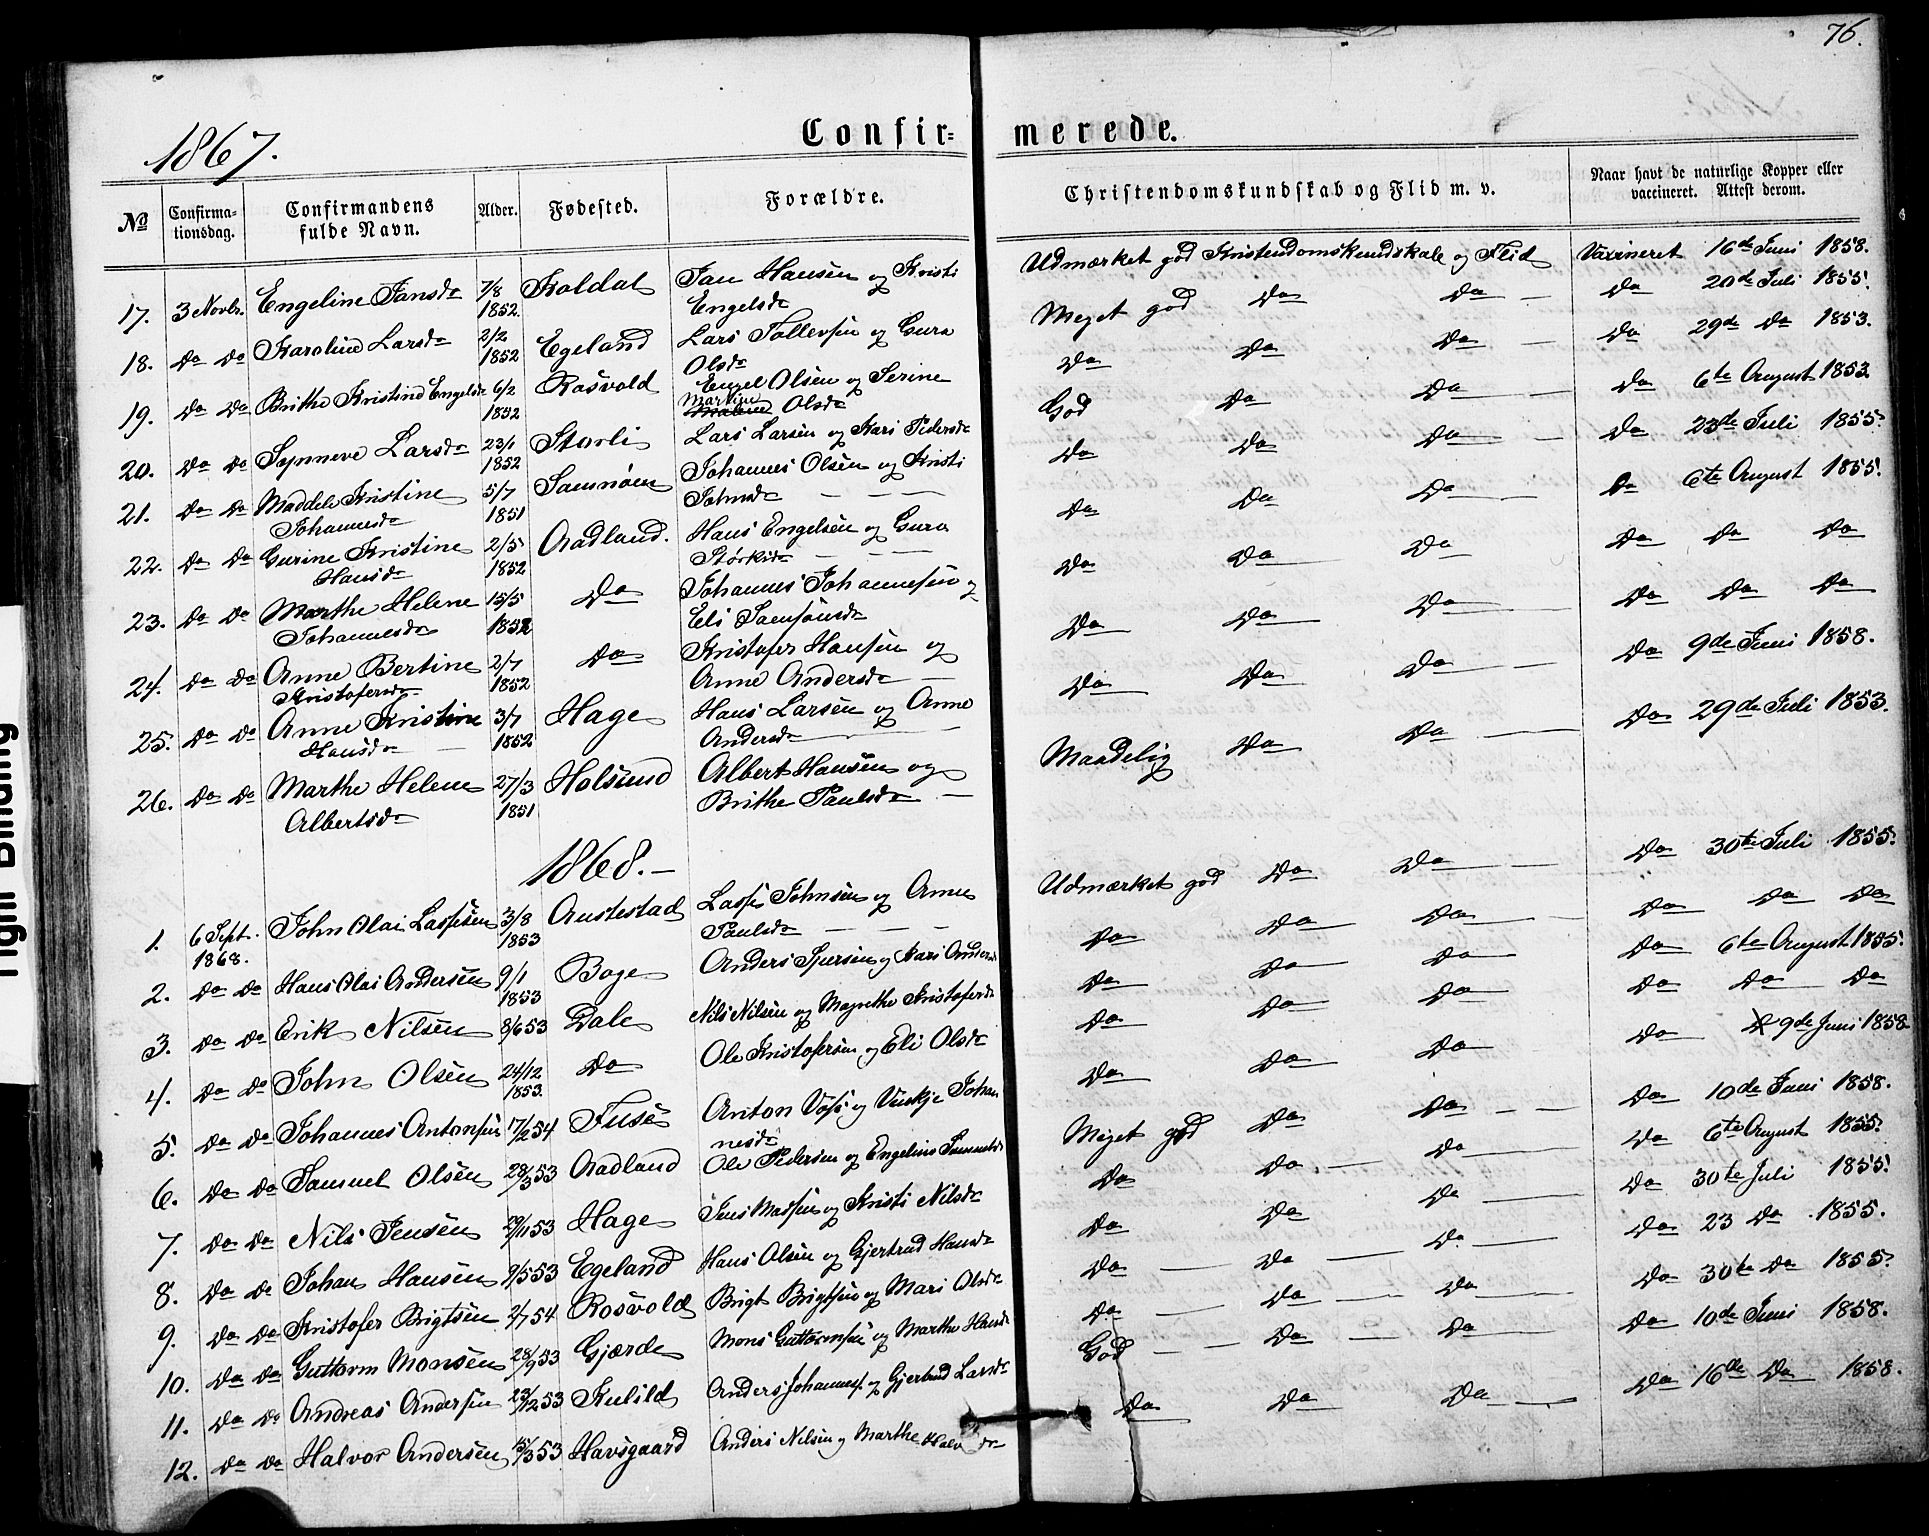 76.
1867.
Confir= merede.
No
Confirma-
tionsdag.
Confirmandens
fulde Navn.
Alder.
Fødested.
Forældre.
Christendomskundskab og Flid m. v.
Naar havt de naturlige Kopper eller
vaccineret. Attest derom.
17. 3 Novbr. Engeline Jansdr 7/8 1852. Koldal Jan Hansen og Kristi Engelsdr Udmærket god Kristendomskundskab og Flid Vaxineret 16de Juni 1858.
18. Do Do Karoline Larsdr 2/2 1852 Egeland Lars Tollevsen og Gura Olsdr Meget god Do Do Do 20de Juli 1855.
19. Do Do Brithe Kristine Engelsdr 6/2 1852 Rosvold Engel Olsen og Serine Martine Olsdr Do Do Do Do 29de Do 1853.
20. Do Do Synneve Larsdr 23/1 1852 Storli Lars Larsen og Kari Pedersdr God Do Do Do 6te August 1853
21. Do Do Maddele Kristine Johannesdr 5/7 1851 Samnøen Johannes Olsen og Kristi Johnsdr Do Do Do Do 23de Juli 1855.
22. Do Do Gurine Kristine Hansdr 2/5 1852 Aadland. Hans Engelsen og Gura Størksdr Do Do Do Do 6te August 1855.
23. Do Do Marthe Helene Johannesdr 15/5 1852 Do Johannes Johannesen og Eli Samsonsdr Do Do Do Do Do Do
24. Do Do Anne Bertine Kristofersdr 2/7 1852 Do Kristofer Hansen og Anne Andersdr Do Do Do Do Do Do
25. Do Do Anne Kristine Hansdr 3/7 1852 Hage Hans Larsen og Anne Andersdr Do Do Do Do 9de Juni 1858.
26. Do Do Marthe Helene Albertsdr 27/3 1851 Holsund Albert Hansen og Brithe Paulsdr Maadelig Do Do Do 29de Juli 1853.
1868.
1. 6 Sept. 1868. John Olai Lassesen 3/8 1853 Austestad Lasse Johnsen og Anna Paulsdr Udmærket god Do Do Do 30te Juli 1855.
2. Do Do Hans Olai Andersen 9/1 1853 Boge Anders Sjursen og Kari Andersdr Do Do Do Do Do Do
3. Do Do Erik Nilsen 8/6 53 Dale Nils Nilsen og Magnethe Kristofersdr Do Do Do Do 6te August 1855.
4. Do Do John Olsen 24/12 1853. Do Ole Kristofersen og Eli Olsdr Do Do Do Do Do Do
5. Do Do Johannes Antonsen 17/2 54 Fuse Anton Voss og Vinkje Johannesdr Do Do Do Do 9de Juni 1858
6. Do Do Samuel Olsen 28/3 53 Aadland Ole Pedersen og Engeline Samuelsdr Meget god Do Do Do 10de Juni 1858.
7. Do Do Nils Jensen 29/11 53 Hage Jens Massen og Kristi Nilsdr Do Do Do Do 6te August 1855.
8. Do Do Johan Hansen 9/5 53 Egeland Hans Olsen og Gjertrud Hansdr Do Do Do Do 30te Juli 1855.
9. Do Do Kristofer Brigtsen 2/7 54 Rosvold Brigt Brigtsen og Mari Olsdr Do Do Do Do 23 Do 1855.
10. Do Do Guttorm Monsen 28/9 53 Gjærde Mons Guttormsen og Marthe Hansdr Do Do Do Do 30te Do 1855.
11. Do Do Andreas Andersen 23/12 53 Kulild Anders Johannes. og Gjertrud Larsdr God Do Do Do 10de Juni 1858.
12. Do Do Halvor Andersen 15/3 53 Havsgaard Anders Nilsen og Marthe Halvorsdr Do Do Do Do 16de Do 1858.
Tight Binding